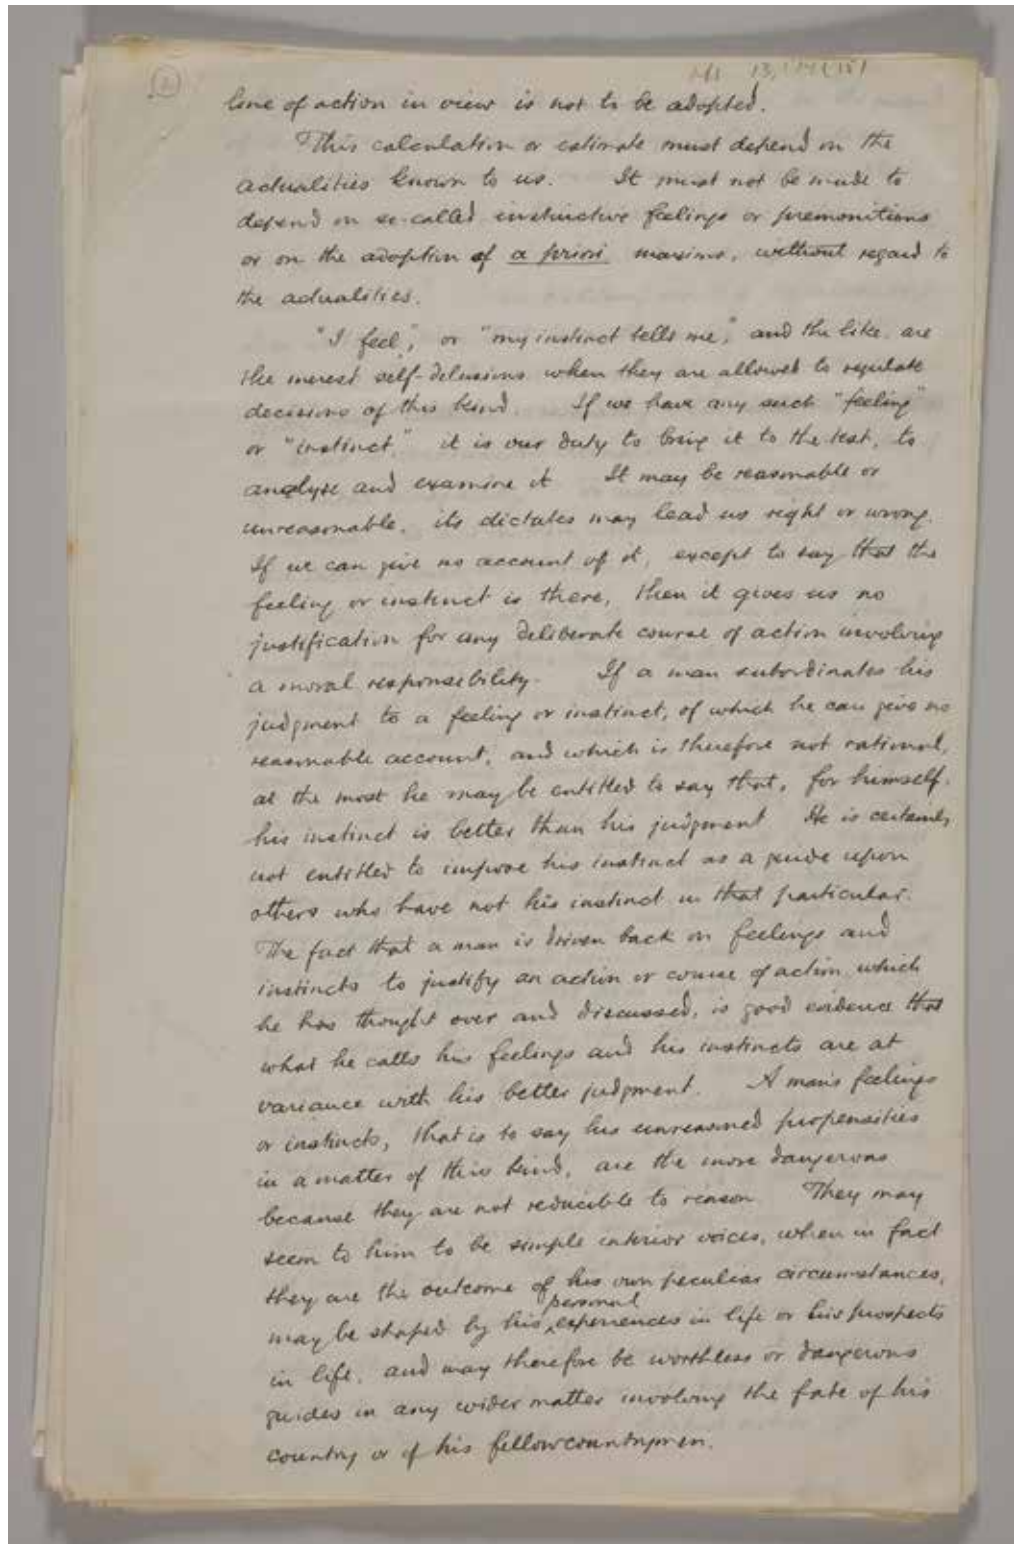 MS 13,174(15)
line of action in view is not to be adopted.
This calculation or estimate must depend on the
actualities known to us. It must not be made to
depend on so-called instinctive feelings or premonitions
or on the adoption of a priori maxims, without regard to
the actualities.
"I feel", or "my instinct tells me", and the like, are
the merest self-delusions when they are allowed to regulate
decisions of this kind. If we have any such "feeling"
or "instinct" it is our duty to bring it to the test, to
analyse and examine it It may be reasonable or
unreasonable, its dictates may lead us right or wrong.
If we can give no account of it, except to say that the
feeling or instinct is there, then it gives us no
justification for any deliberate course of action involving
a moral responsibility. If a man subordinates his
judgment to a feeling or instinct, of which he can give no
reasonable account, and which is therefore not rational,
at the most he may be entitled to say that, for himself,
his instinct is better than his judgment He is certainly
not entitled to impose his instinct as a guide upon
others who have not his instinct in that particular.
The fact that a man is driven back on feelings and
instincts to justify an action or course of action which
he has thought over and discussed, is good evidence that
what he calls his feelings and his instincts are at
variance with his better judgment. A man's feelings
or instincts, that is to say his unreasoned propensities
in a matter of this kind, are the more dangerous
because they are not reducible to reason They may
seem to him to be simple interior voices, when in fact
they are the outcome of his own peculiar circumstances,
personal
may be shaped by his experiences in life or his prospects
in life, and may therefore be worthless or dangerous
guides in any wider matter involving the fate of his
country or of his fellowcountrymen.